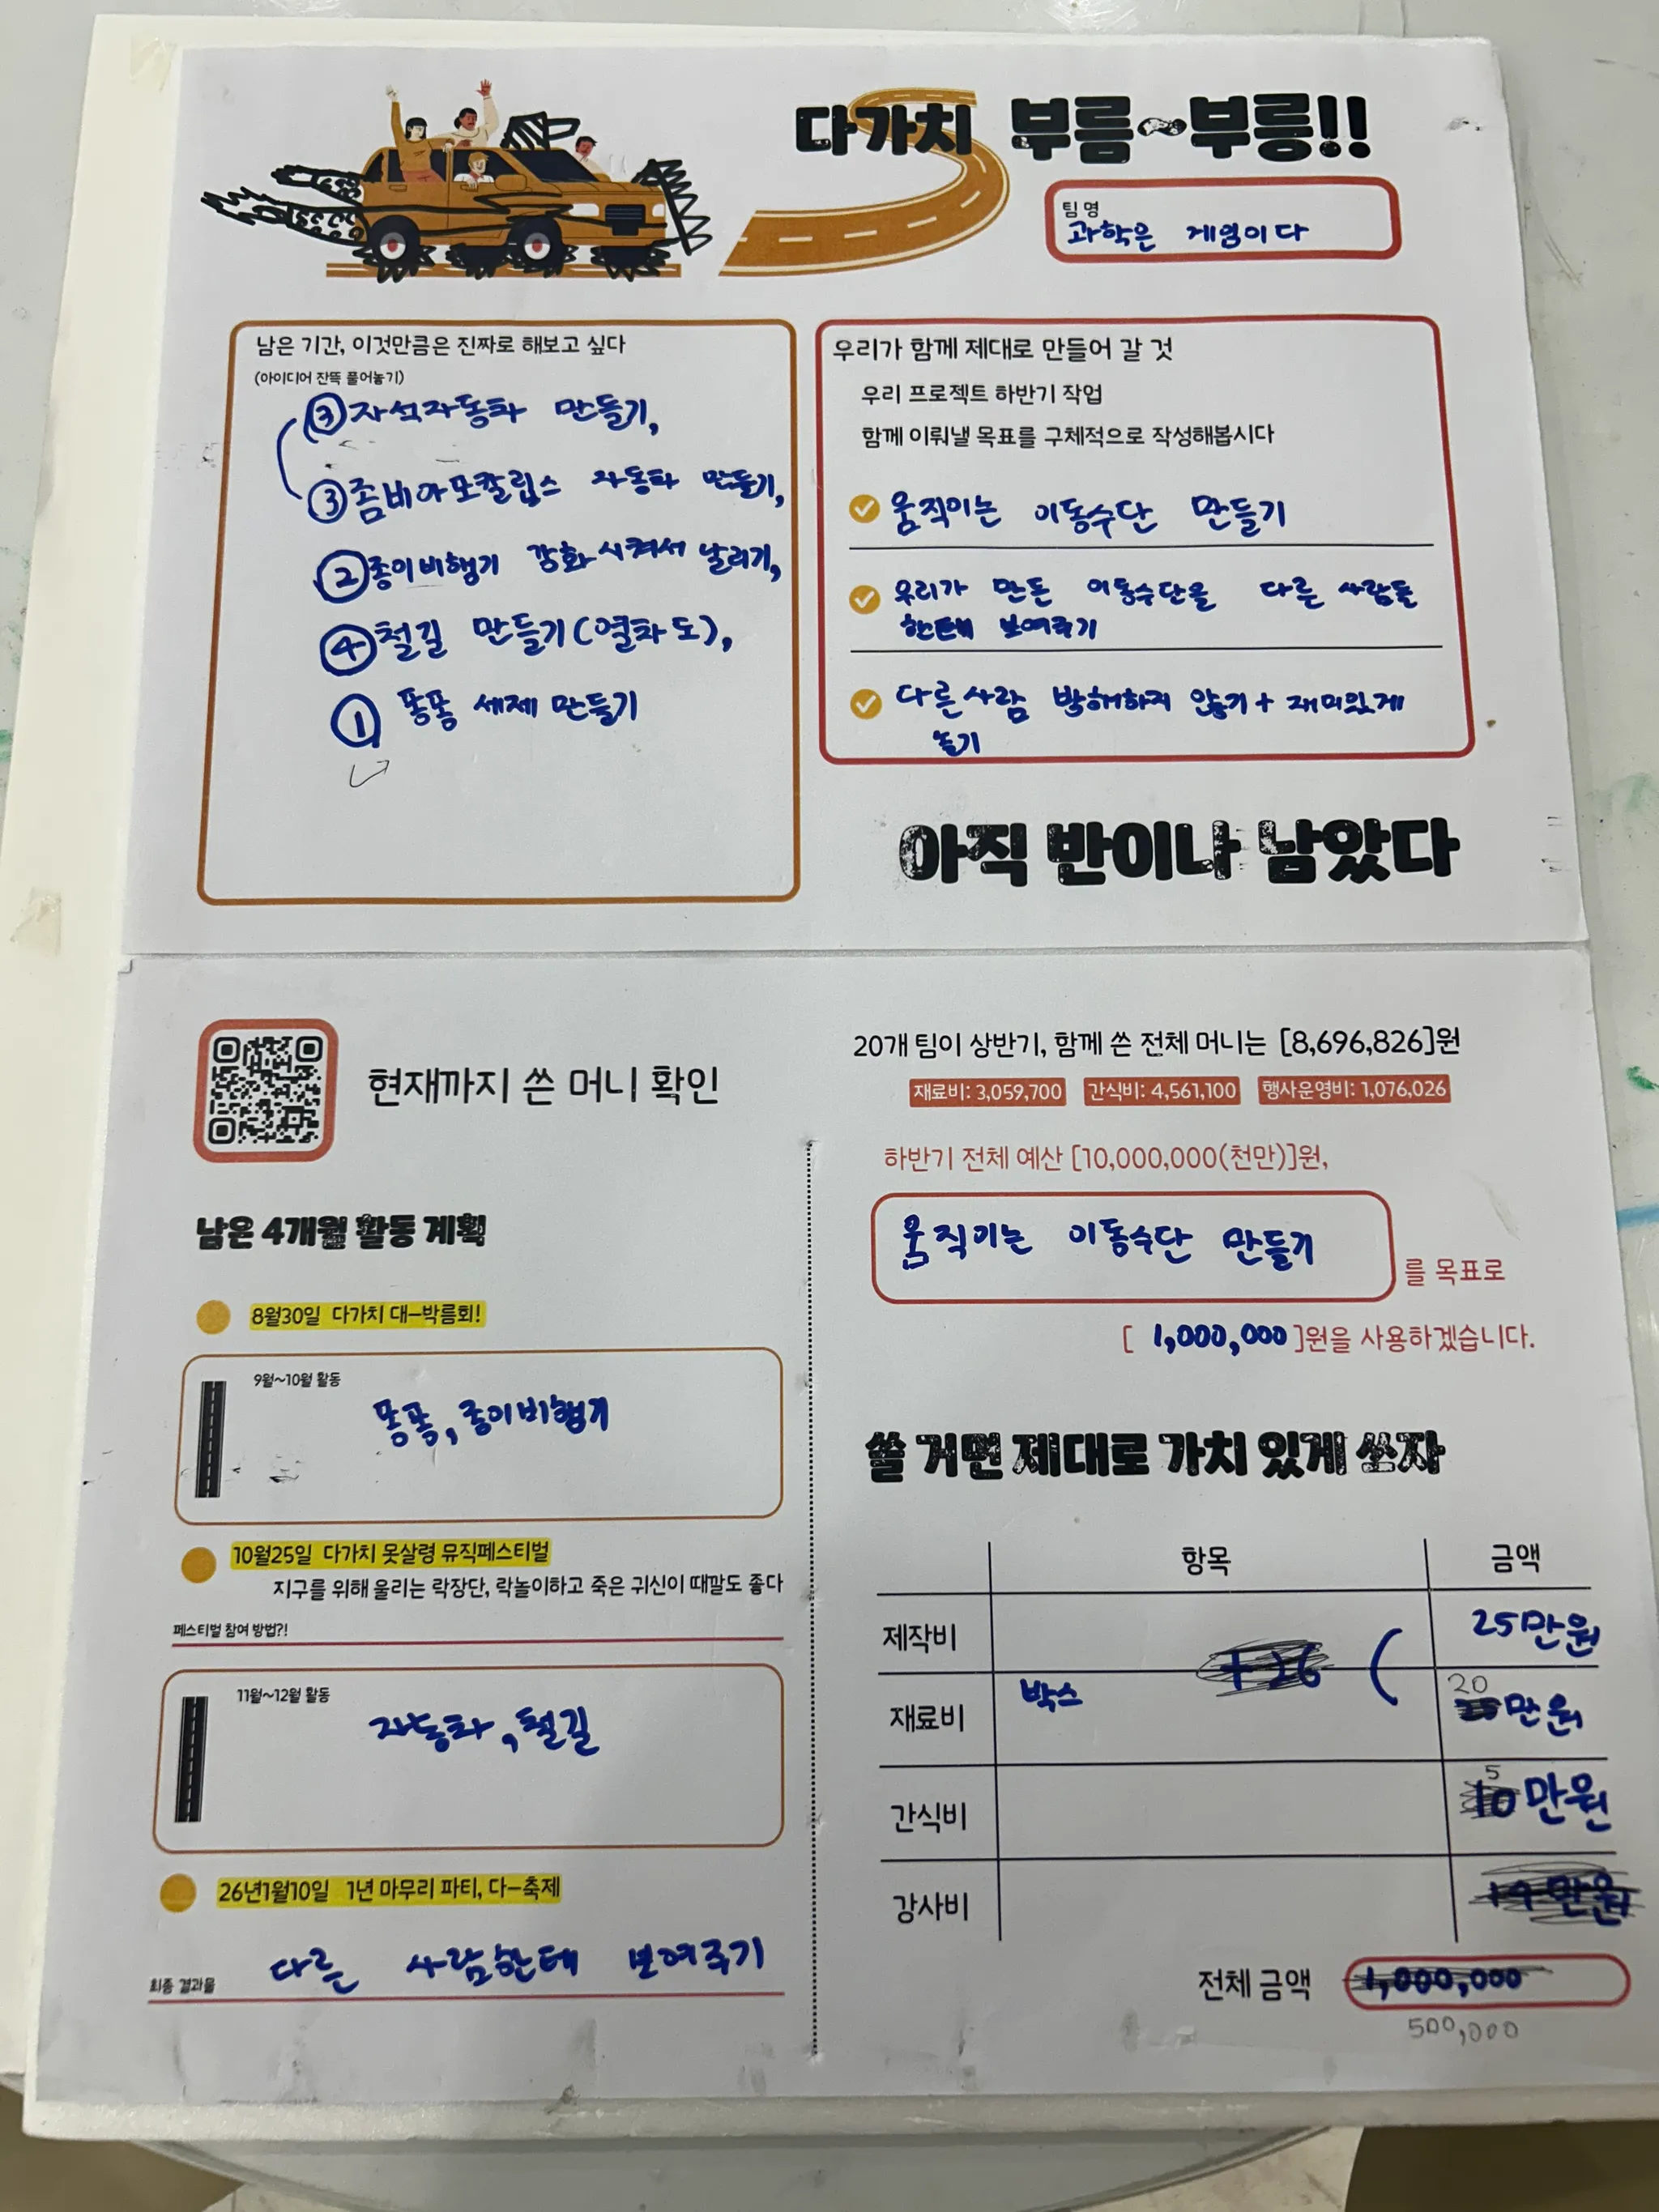 다가치 부름~부릉!!
팀명
과학은 게임이다
남은 기간, 이것만큼은 진짜로 해보고 싶다
(아이디어 잔뜩 풀어놓기)
③ 자석자동차 만들기,
③ 좀비아포칼립스 자동차 만들기,
② 종이비행기 강화시켜서 날리기,
④ 철길 만들기(열차도),
① 퐁퐁 세제 만들기
우리가 함께 제대로 만들어 갈 것
우리 프로젝트 하반기 작업
함께 이뤄낼 목표를 구체적으로 작성해봅시다
움직이는 이동수단 만들기
우리가 만든 이동수단을 다른 사람들
한테 보여주기
다른사람 방해하지 않기 + 재미있게
놀기
아직 반이나 남았다
현재까지 쓴 머니 확인
남은 4개월 활동 계획
8월30일 다가치 대-박름회!
9월~10월 활동
퐁퐁, 종이비행기
10월25일 다가치 못살령 뮤직페스티벌
지구를 위해 울리는 락장단, 락놀이하고 죽은 귀신이 때깔도 좋다
페스티벌 참여 방법?!
11월~12월 활동
자동차, 철길
26년1월10일 1년 마무리 파티, 다-축제
최종 결과물
다른 사람한테 보여주기
20개 팀이 상반기, 함께 쓴 전체 머니는 [8,696,826]원
재료비: 3,059,700 간식비: 4,561,100 행사운영비: 1,076,026
하반기 전체 예산 [10,000,000(천만)]원,
움직이는 이동수단 만들기
를 목표로
[ 1,000,000 ]원을 사용하겠습니다.
쓸 거면 제대로 가치 있게 쓰자
항목 금액
제작비 25만원
재료비 박스 20만원
간식비 5만원
강사비
전체 금액 1,000,000
500,000